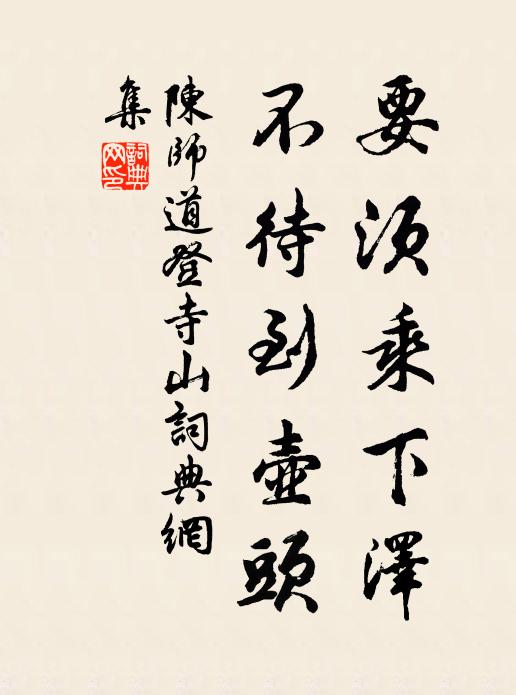 要須乘下澤
不待到壺頭
陳師道登寺山詞典網
集
詞典網印